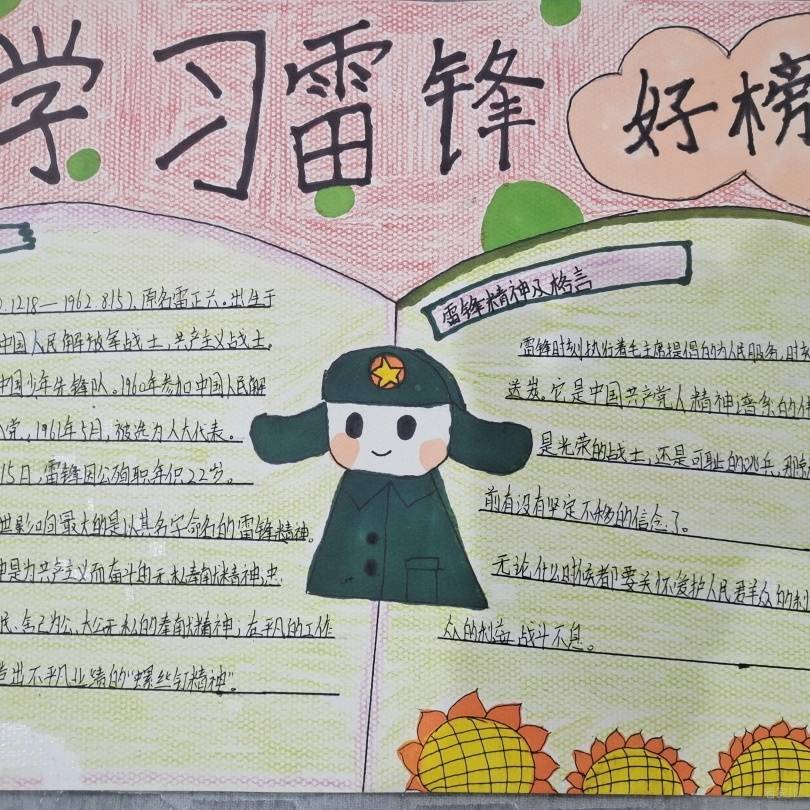 学习雷锋
好榜
.12.18—1962.8.15),原名雷正兴。出生于
中国人民解放军战士,共产主义战士。
中国少年先锋队。1960年参加中国人民解
入党。1961年5月,被选为人大代表。
15日,雷锋因公殉职,年仅22岁。
世影响最大的是以其名字命名的雷锋精神。
是为共产主义而奋斗的无私奉献精神;忠
民、舍己为公、大公无私的奉献精神;在平凡的工作
造出不平凡业绩的"螺丝钉精神"。
雷锋精神及格言
雷锋时刻执行着毛主席提倡的为人民服务,时刻
送炭。它是中国共产党人精神谱系的伟
是光荣的战士,还是可耻的逃兵,那
前有没有坚定不移的信念了。
无论什么时候都要关怀爱护人民群众的利
众的利益战斗不息。